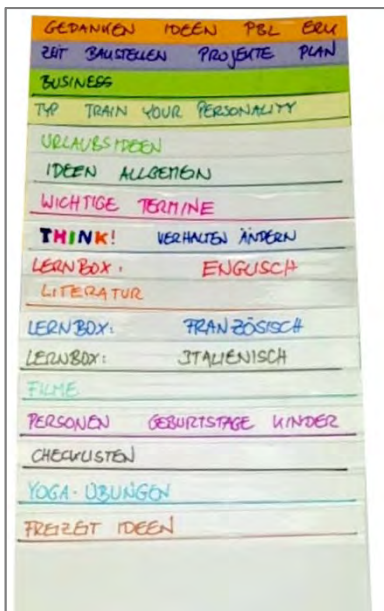 GEDANKEN IDEEN PBL ERU
ZEIT BAUSTELLEN PROJEKTE PLAN
BUSINESS
TYP TRAIN YOUR PERSONALITY
URLAUBSIDEEN
IDEEN ALLGEMEIN
WICHTIGE TERMINE
THINK! VERHALTEN ÄNDERN
LERNBOX: ENGLISCH
LITERATUR
LERNBOX: FRANZÖSISCH
LERNBOX: ITALIENISCH
FILME
PERSONEN GEBURTSTAGE KINDER
CHECKLISTEN
YOGA-ÜBUNGEN
FREIZEIT IDEEN